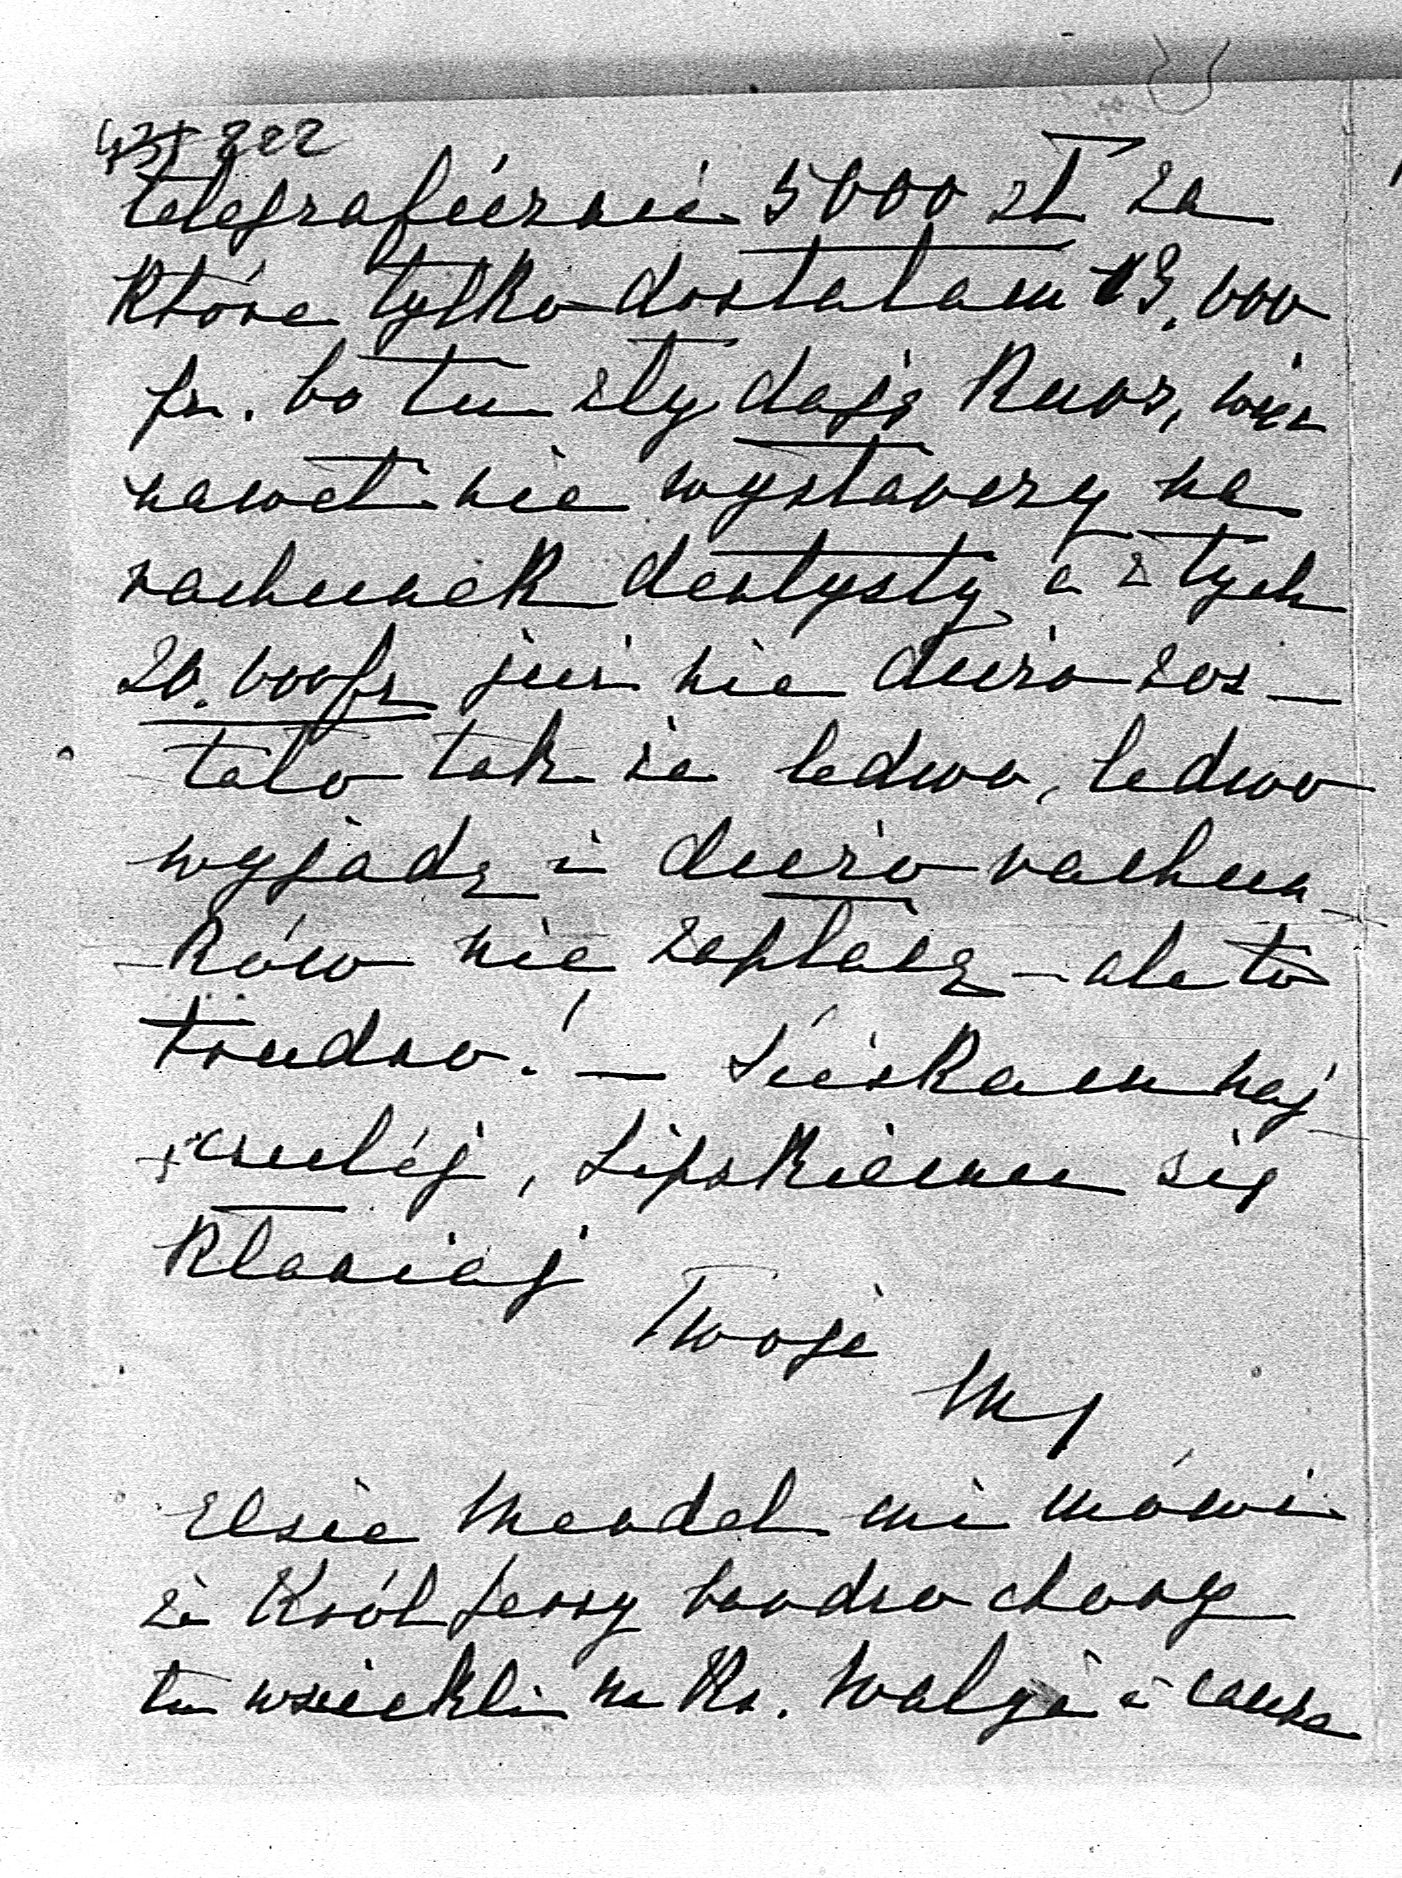 222
telegraficznie 5000 zł za
które tylko dostałam 19.000
fr. bo tu zły dają kurs, więc
nawet nie wystarczy na
rachunek dentysty a z tych
20.000 fr już nie dużo zos-
tało tak że ledwo, ledwo
wyjadę i dużo rachun
ków nie zapłacę – ale to
trudno! – Ściskam naj
czulej, Lipskiemu się
kłaniaj
Twoje
Elsie Mendel mi mówi
że Król Jerzy bardzo chory
tu wściekli na Ks. Walji i